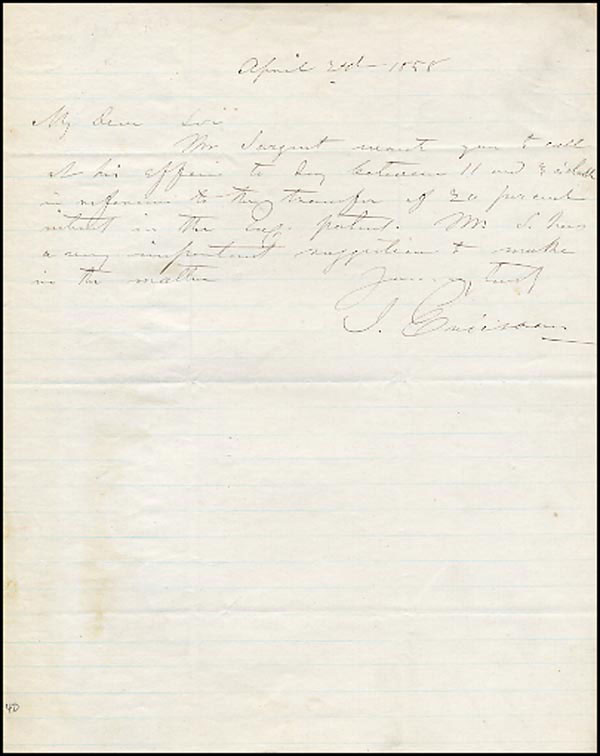 April 2d 1858
My Dear Sir
Mr Sargent wants you to call
at his office to day between 11 and 3 o'clock
in reference to the transfer of 20 per cent
interest in the Eng. patent. Mr S. has
a very important suggestion to make
in the matter Yours truly
J. Ericsson
40